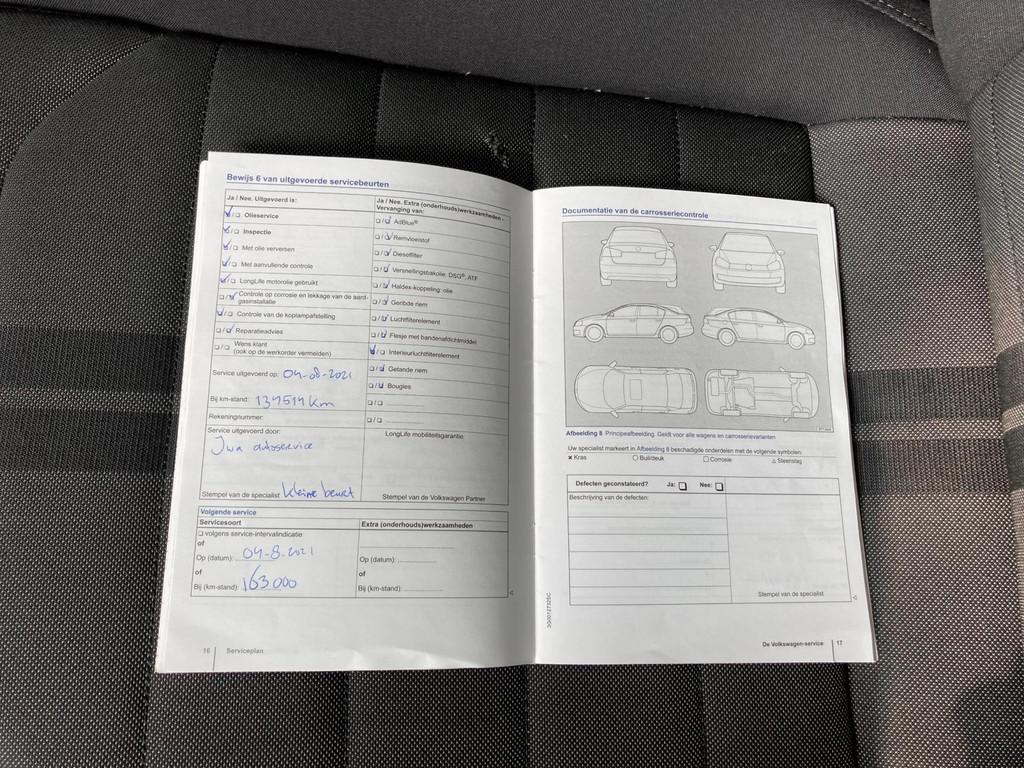 Bewijs 6 van uitgevoerde servicebeurten
Ja / Nee. Uitgevoerd is:
Olieservice
Inspectie
Met olie verversen
Met aanvullende controle
LongLife motorolie gebruikt
Controle op corrosie en lekkage van de aard-
gasinstallatie
Controle van de koplampafstelling
Reparatieadvies
Wens klant
(ook op de werkorder vermelden)
Service uitgevoerd op: 04-08-2021
Bij km-stand: 134514 km
Rekeningnummer:
Service uitgevoerd door:
Jwa autoservice
Stempel van de specialist kleine beurt
Ja / Nee. Extra (onderhouds)werkzaamheden -
Vervanging van:
AdBlue®
Remvloeistof
Dieselfilter
Versnellingsbakolie: DSG®, ATF
Haldex-koppeling: olie
Geribde riem
Luchtfilterelement
Flesje met bandenafdichtmiddel
Interieurluchtfilterelement
Getande riem
Bougies
LongLife mobiliteitsgarantie:
Stempel van de Volkswagen Partner
Volgende service
Servicesoort
volgens service-intervalindicatie
of
Op (datum): 04-8-2021
of
Bij (km-stand): 163000
Extra (onderhouds)werkzaamheden
Op (datum):
of
Bij (km-stand):
16 Serviceplan
Documentatie van de carrosseriecontrole
Afbeelding 8 Principeafbeelding. Geldt voor alle wagens en carrosserievarianten
Uw specialist markeert in Afbeelding 8 beschadigde onderdelen met de volgende symbolen:
Kras Buil/deuk Corrosie Steenslag
Defecten geconstateerd? Ja: Nee:
Beschrijving van de defecten:
Stempel van de specialist
De Volkswagen-service 17